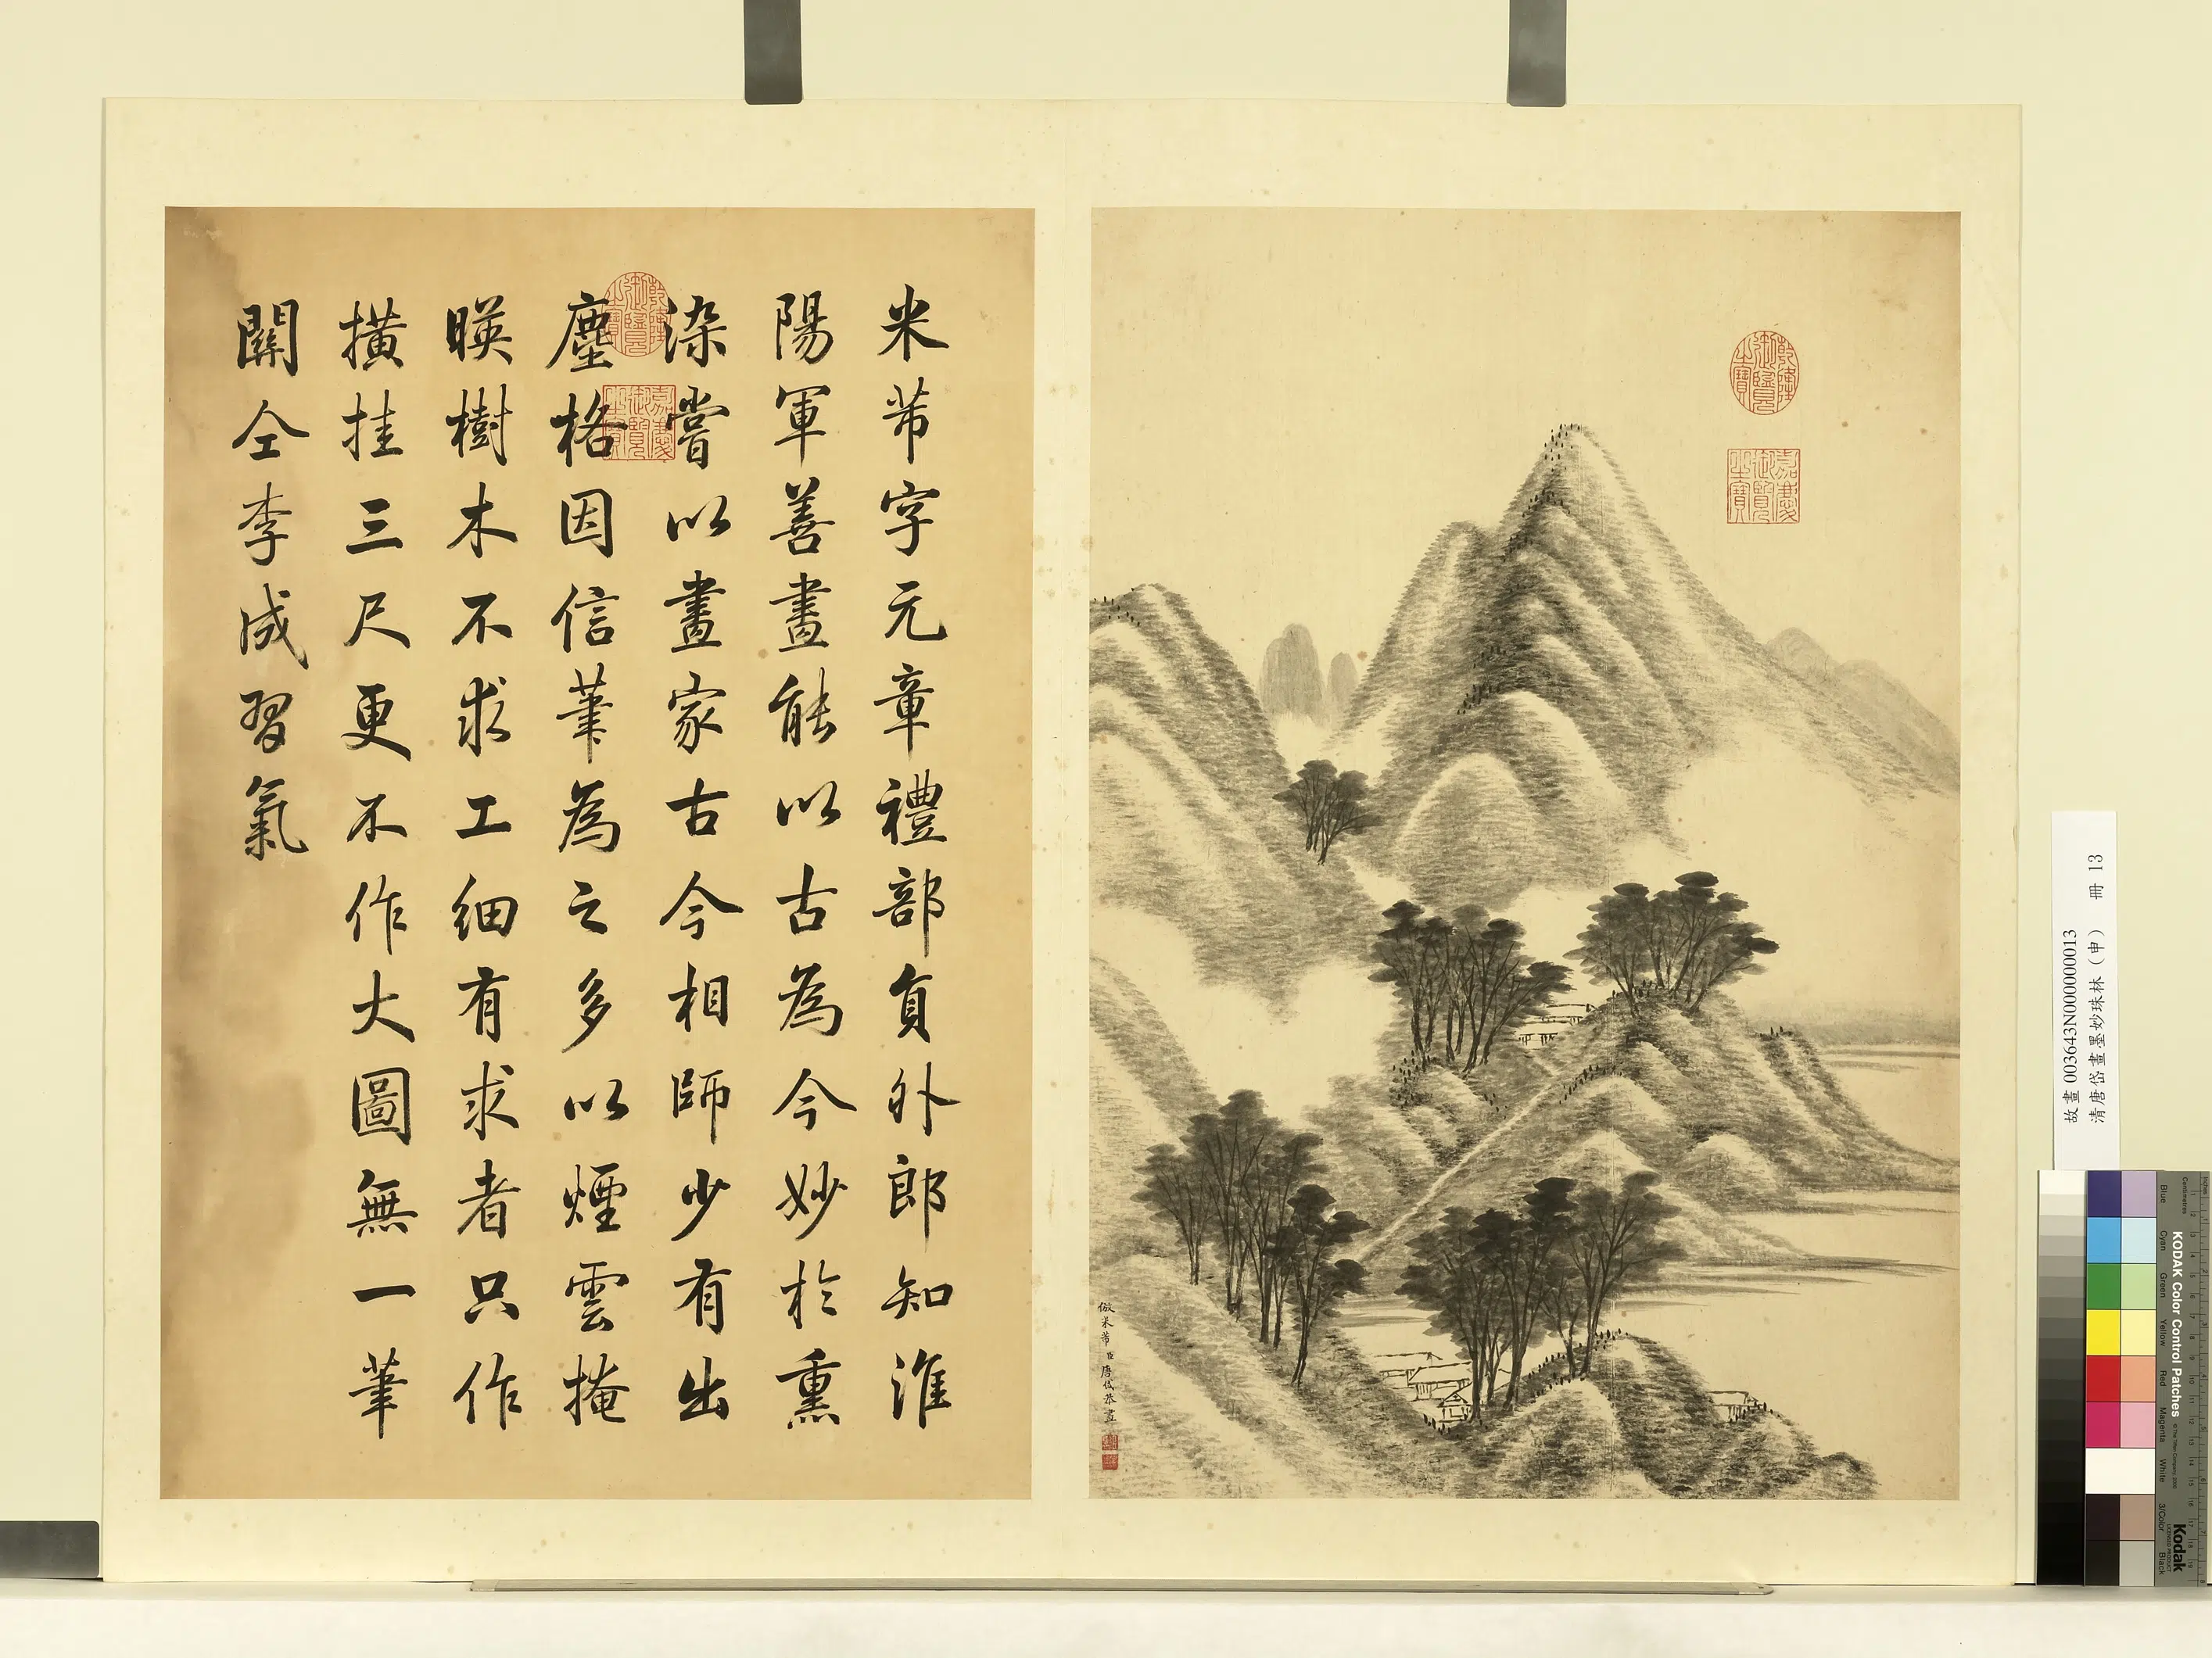 米芾字元章禮部員外郎知淮
陽軍善畫能以古為今妙於熏
染嘗以畫家古今相師少有出
塵格因信筆為之多以煙雲掩
暎樹木不求工細有求者只作
橫挂三尺更不作大圖無一筆
關仝李成習氣
乾隆御覽之寶
嘉慶御覽之寶
乾隆御覽之寶
嘉慶御覽之寶
倣米芾 臣唐岱恭畫
故畫 003643N000000013
清唐岱畫墨妙珠林（申） 冊 13
KODAK Color Control Patches
Blue
Cyan
Green
Yellow
Red
Magenta
White
3/Color
Black
Kodak
Inches
Centimetres